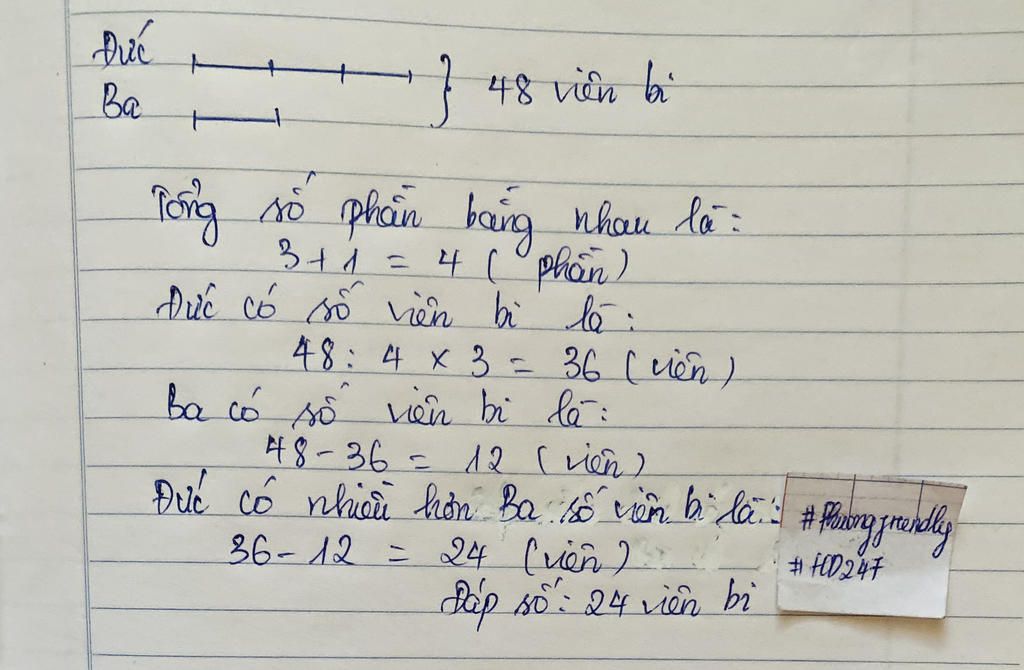 Đức
Ba
48 viên bi
Tổng số phần bằng nhau là:
3 + 1 = 4 ( phần)
Đức có số viên bi là:
48 : 4 x 3 = 36 (viên)
Ba có số viên bi là:
48 - 36 = 12 (viên)
Đức có nhiều hơn Ba số viên bi là:
36 - 12 = 24 (viên)
Đáp số: 24 viên bi
#Phuongfriendly
#HD247